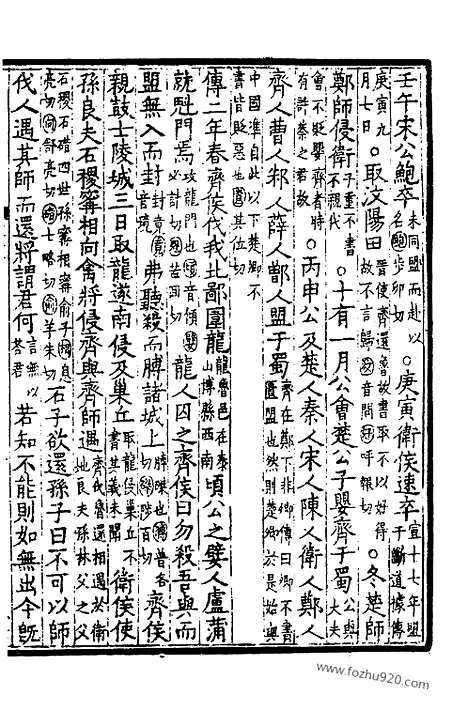 壬午宋公鮑卒未同盟而赴以名鮑步卯切○庚寅衛侯速卒宣十七年盟于斷道據傳
庚寅九月七日○取汶陽田晉使齊還魯故書取不以好得故不言歸汶音問好呼報切○冬楚師
鄭師侵衛子重不書不親伐○十有一月公會楚公子嬰齊于蜀公與大夫
會不貶嬰齊者時有許蔡之君故○丙申公及楚人秦人宋人陳人衛人鄭人
齊人曹人邾人薛人鄫人盟于蜀齊在鄭下非卿傳曰卿不書匱盟也然則楚卿於是始與
中國準自此以下楚卿不書皆貶惡也匱其位切
傳二年春齊侯伐我北鄙圍龍龍魯邑在泰山博縣西南頃公之嬖人盧蒲
就魁門焉攻龍門也頃音傾嬖必計切魁苦回切龍人囚之齊侯曰勿殺吾與而
盟無入而封封竟竟音境弗聽殺而膊諸城上膊磔也膊普各切磔陟百切齊侯
親鼓士陵城三日取龍遂南侵及巢丘取龍侵巢丘不書其義未聞衛侯使
孫良夫石稷甯相向禽將侵齊與齊師遇齊伐魯還相遇於衛地良夫孫林父之父
石稷石碏四世孫甯相甯俞子相息亮切向舒亮切碏七略切俞羊朱切石子欲還孫子曰不可以師
伐人遇其師而還將謂君何言無以荅君若知不能則如無出今既
www.fozhu920.com